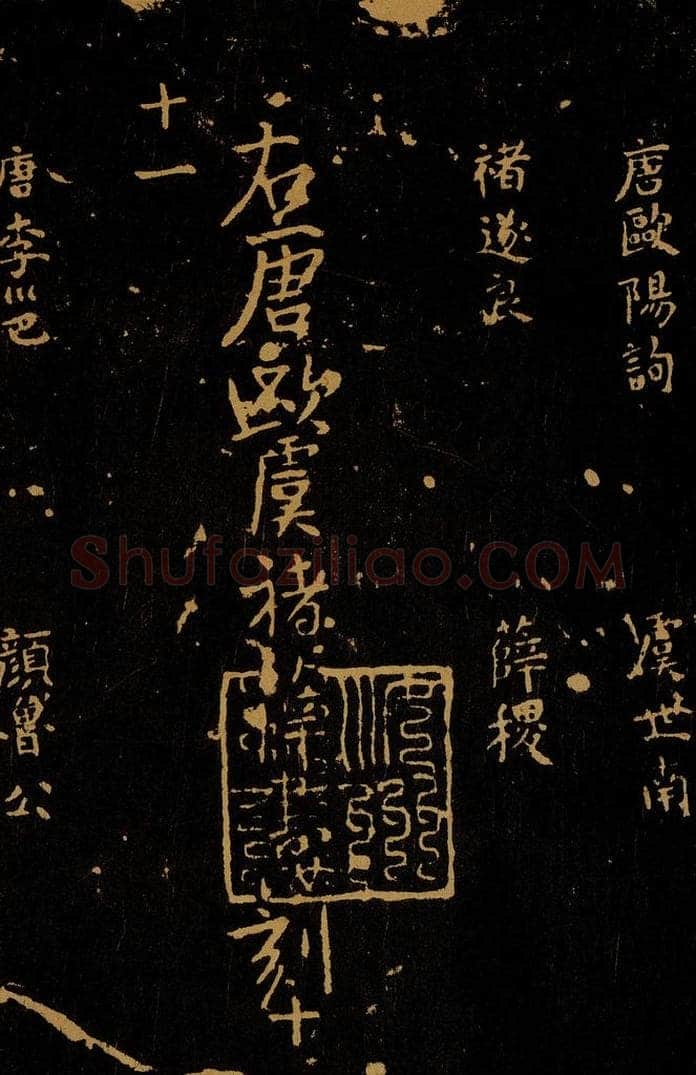 唐歐陽詢
虞世南
褚遂良
薛稷
右唐歐虞褚薛書世刻
十一
唐李邕
顏魯公
Shufaziliao.COM